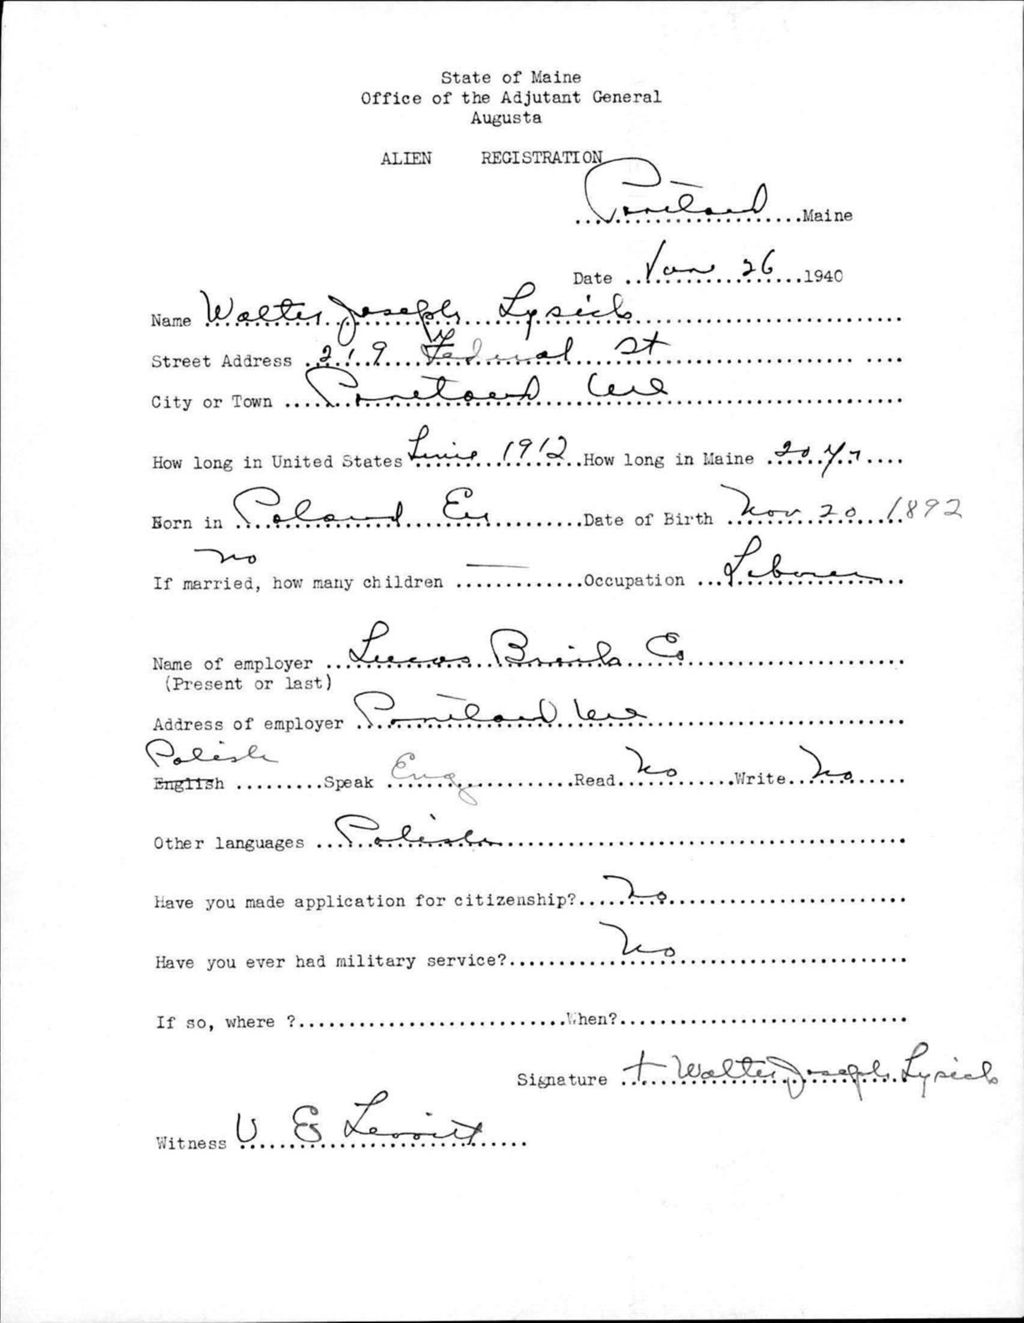 State of Maine
Office of the Adjutant General
Augusta
ALIEN REGISTRATION
Portland Maine
Date Jan 26 1940
Name Walter Joseph Lysick
Street Address 219 Federal St
City or Town Portland Me
How long in United States Since 1912 How long in Maine 20 Yr
Born in Poland Eu Date of Birth Nov 20 1892
no
If married, how many children — Occupation Laborer
Name of employer Lucas Brick Co
(Present or last)
Address of employer Portland Me
Polish
English Speak Eng Read No Write No
Other languages Polish
Have you made application for citizenship? No
Have you ever had military service? No
If so, where ? When?
Signature + Walter Joseph Lysick
Witness V E Leavitt